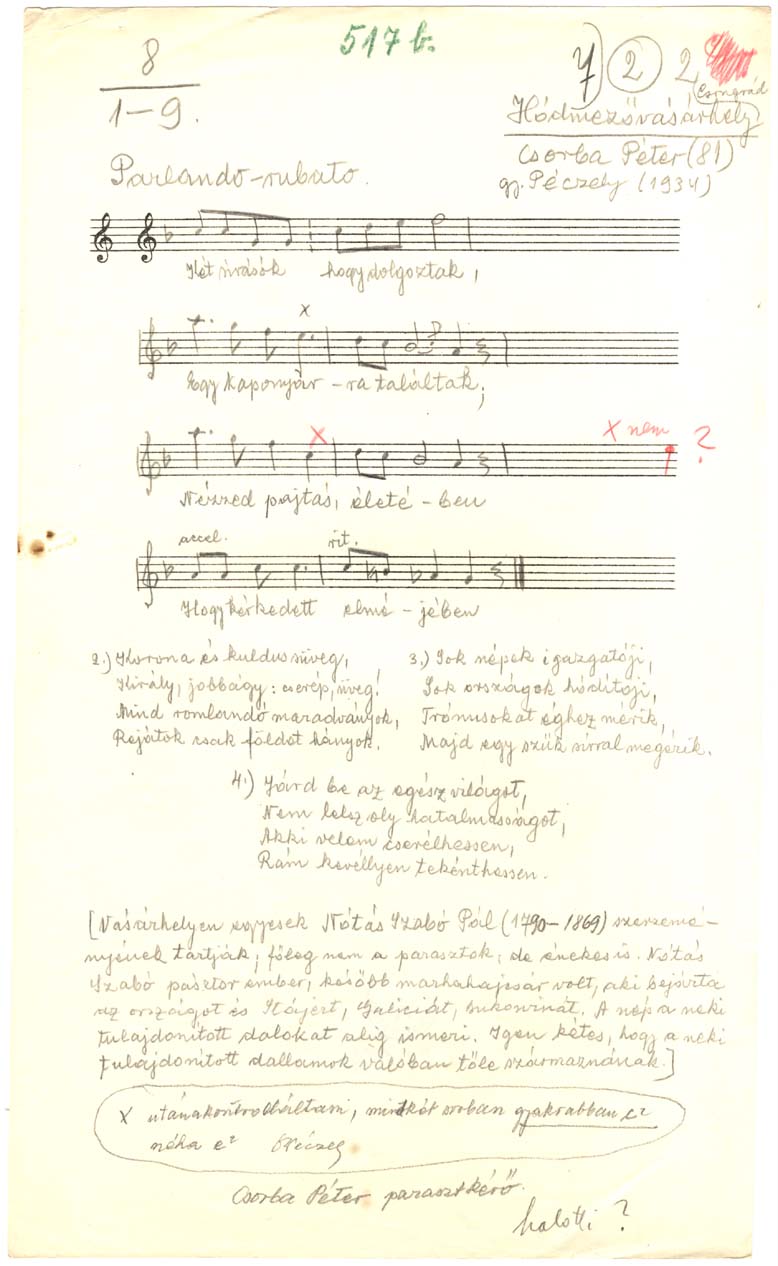 517 b.
8
1–9.
7) 2 2,
Csongrád
Hódmezővásárhely
Csorba Péter (81)
gy. Péczely (1934)
Parlando-rubato.
Két sirásók hogy dolgoztak,
x
Egy kaponyár – ra találtak;
x
x nem ?
Nézzed pajtás, életé – ben
accel. rit.
Hogy kérkedett elmé – jében
2.) Korona és kuldus süveg,
Király, jobbágy: cserép, üveg!
Mind romlandó maradványok,
Rejátok csak földet hányok.
3.) Sok népek igazgatóji,
Sok országok hódítóji,
Trónusokat éghez mérik,
Majd egy szük sírral megérik.
4.) Járd be az egész világot,
Nem lelsz oly hatalmasságot,
Akki velem cserélhessen,
Rám kevéllyen tekénthessen.
[Vásárhelyen egyesek Nótás Szabó Pál (1790–1869) szerzemé–
nyének tartják; főleg nem a parasztok, de énekes is. Nótás
Szabó pásztor ember, később marhahajcsár volt, aki bejárta
az országot és Stájert, Galiciát, Bukovinát. A nép a neki
tulajdonított dalokat alig ismeri. Igen kétes, hogy a neki
tulajdonított dallamok valóban tőle származnának.]
x utánakontrolláltam, mindkét sorban gyakrabban c²
néha e² Péczely
Csorba Péter parasztkérő.
halotti ?